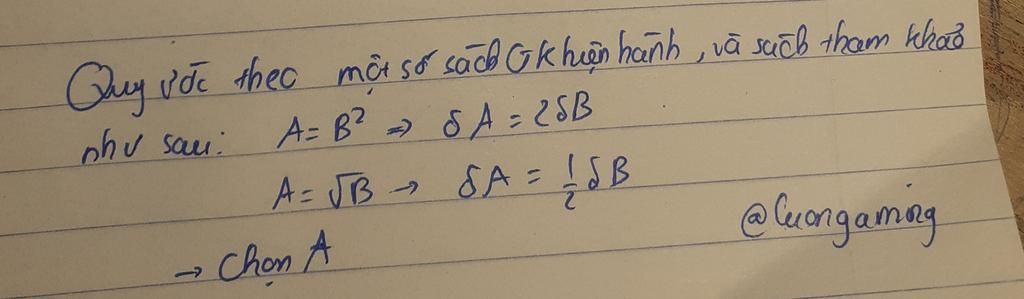 Quy ước theo một số sách GK hiện hành, và sách tham khảo
như sau: A = B² => δA = 2δB
A = √B → δA = 1/2 δB
@Cuongaming
→ Chọn A